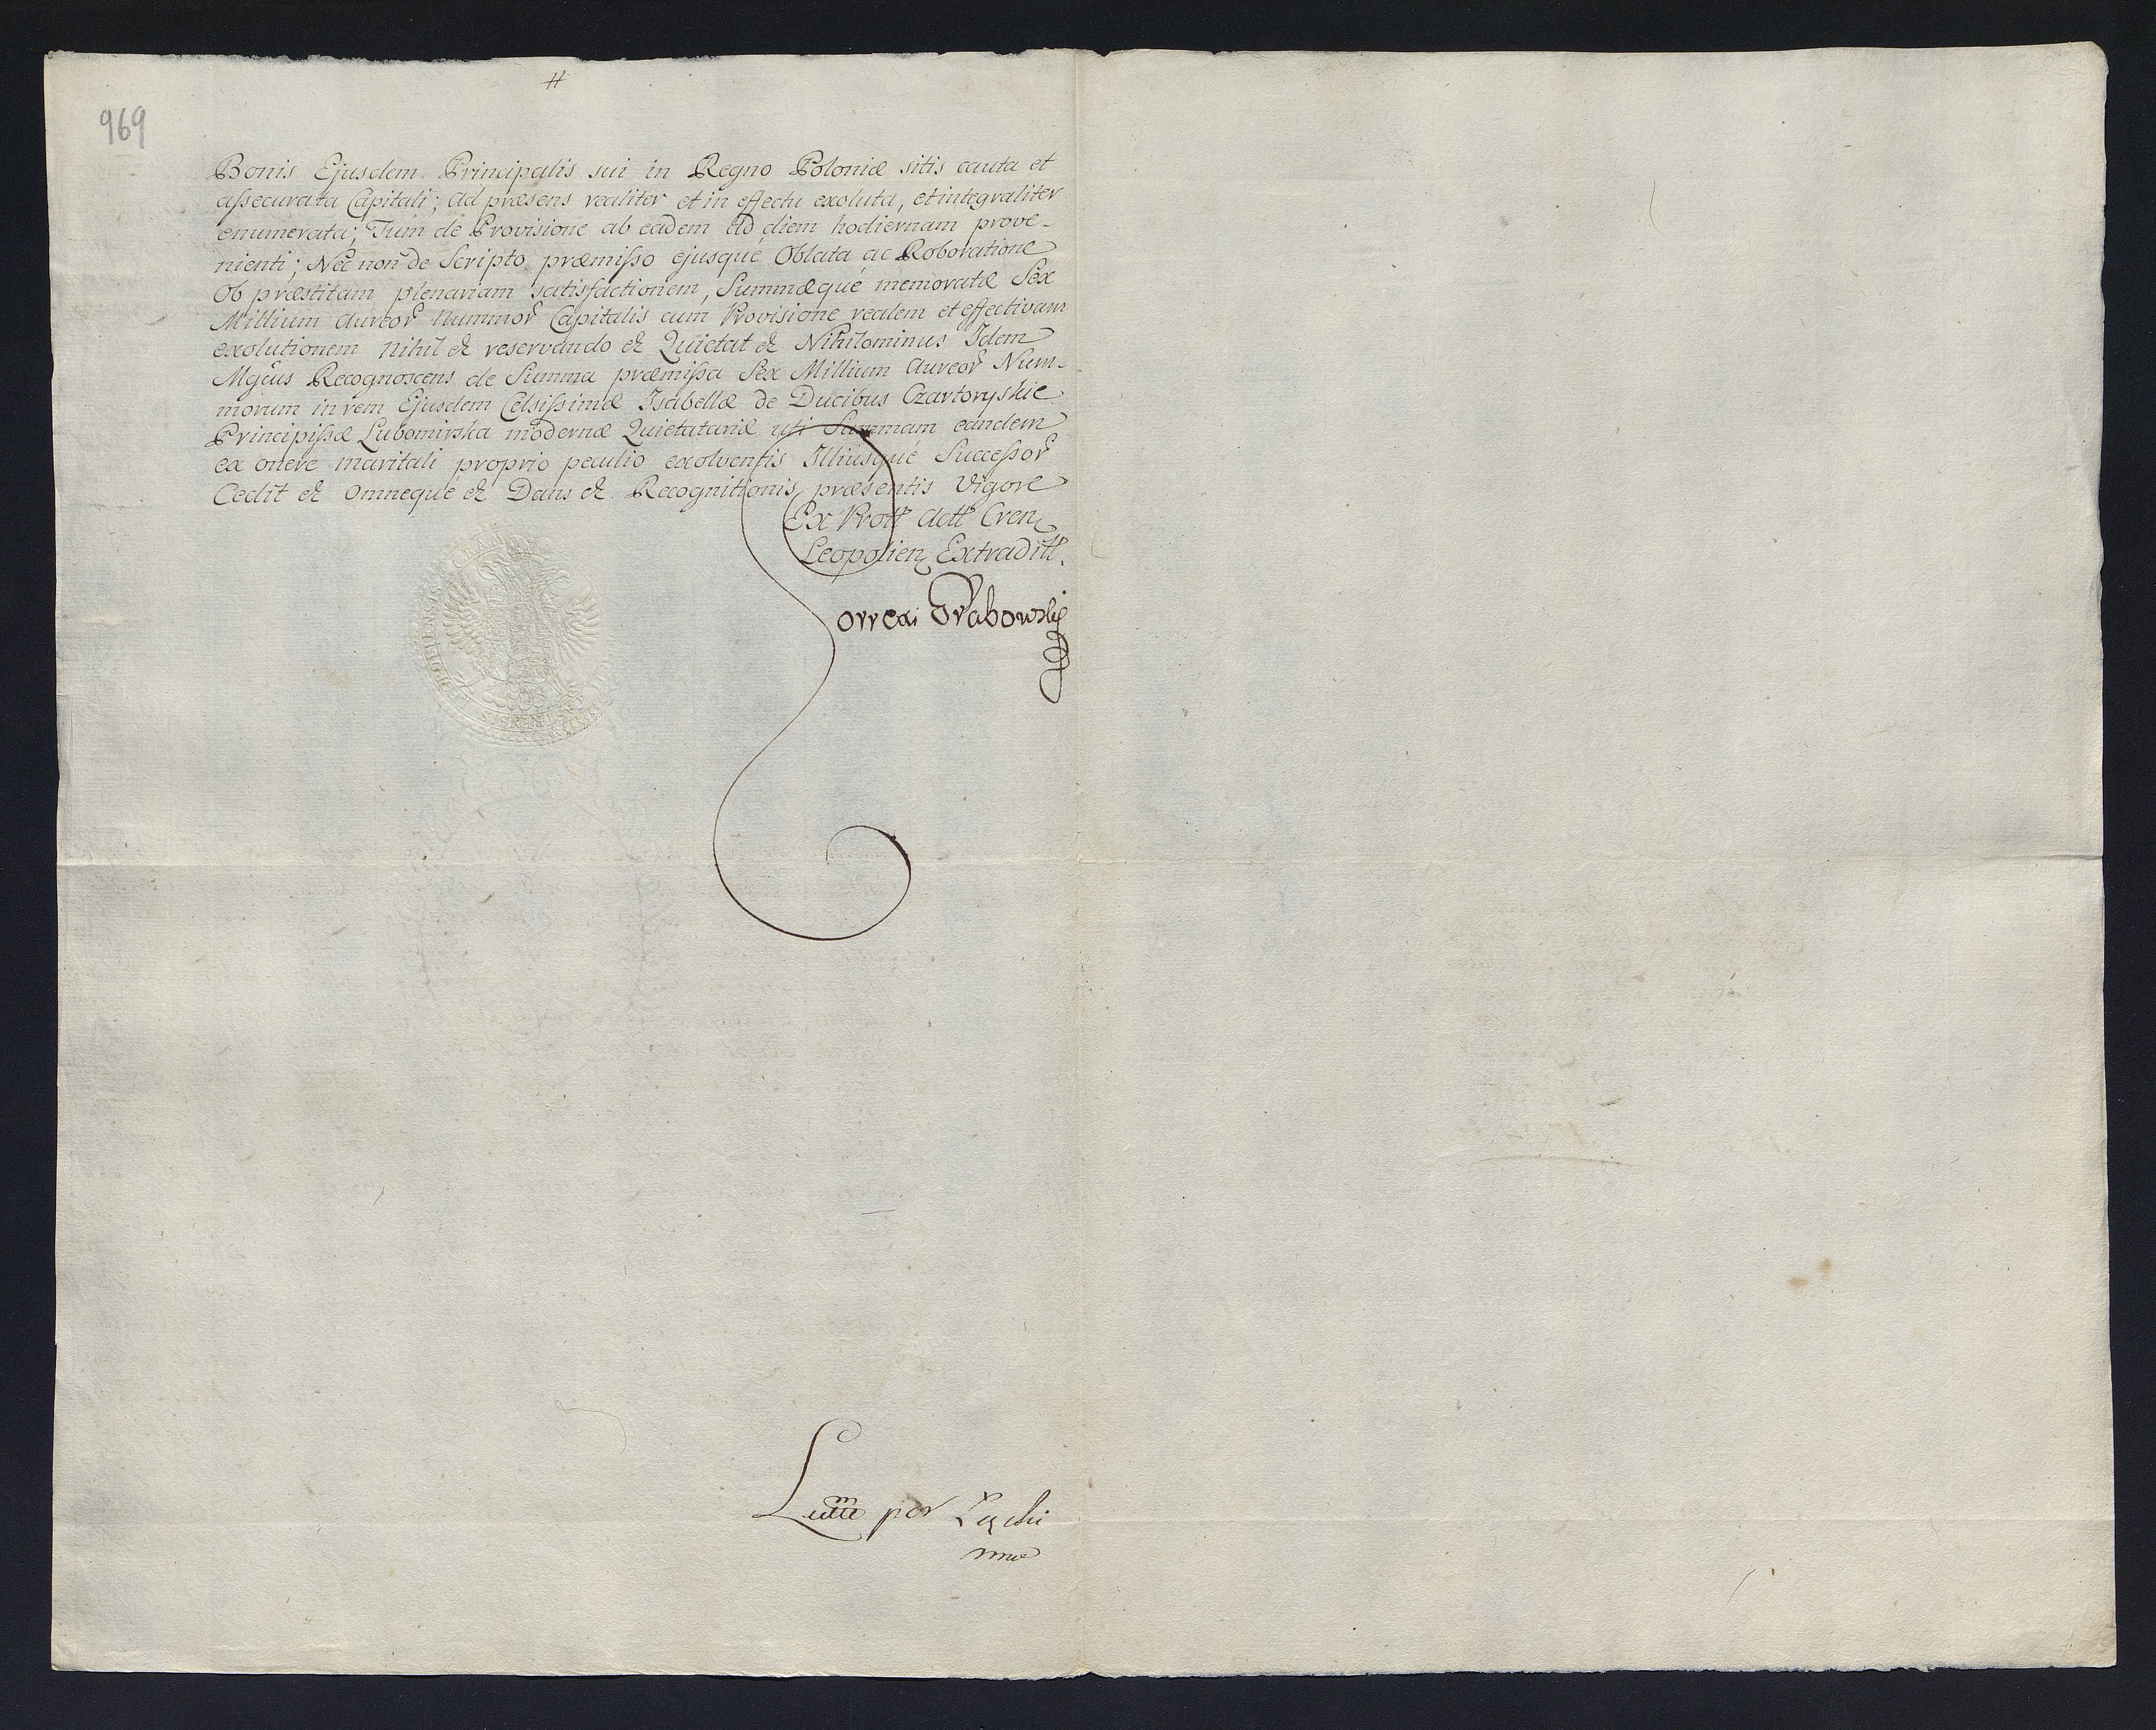 969
Bonis Ejusdem Principalis sui in Regno Poloniæ sitis cauta et
aſsecurata Capitali; ad præsens realiter et in effectu exoluta, et integraliter
enumerata; Tum de Provisione ab eadem ad diem hodiernam prove-
nienti; Nec non de Scripto præmiſso ejusque Oblata ac Roboratione
Ob præstitam plenariam satisfactionem, Summæque memoratæ Sex
Millium aureor nummor Capitalis cum Provisione realem et effectivam
exolutionem nihil & reservando & Quietat & Nihilominus Idem
Mgcus Recognoscens de Summa præmiſsa Sex Millium Aureor Num-
morum in rem Ejusdem Celsiſsimæ Isabellæ de Ducibus Czartoryskie
Principiſsæ Lubomirska modernæ Quietatariæ uti Summam eandem
ex onere maritali proprio peculio exolventis Illiusque Succeſsor
Cedit & Omneque & Dans & Recognitionis præsentis vigore
Ex Prott Actt Cren
Leopolien Extraditt.
orrexi Grabowski
Lectm per
mp
LEOPOLIENSIS